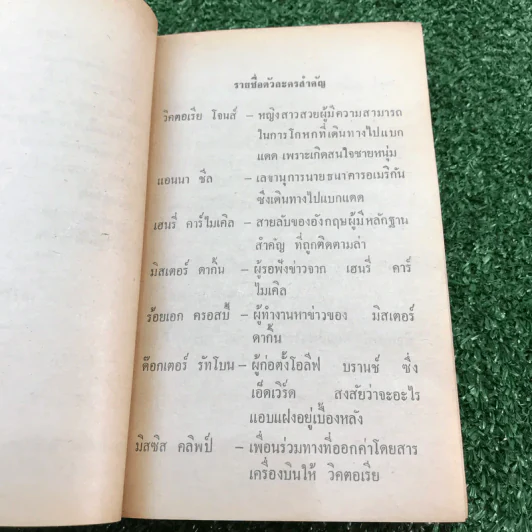 รายชื่อตัวละครสำคัญ
วิคตอเรีย โจนส์ – หญิงสาวสวยผู้มีความสามารถ
ในการโกหกที่เดินทางไปแบก
แดด เพราะเกิดสนใจชายหนุ่ม
แอนนา ชีล – เลขานุการนายธนาคารอเมริกัน
ซึ่งเดินทางไปแบกแดด
เฮนรี่ คาร์ไมเคิล – สายลับของอังกฤษผู้มีหลักฐาน
สำคัญ ที่ถูกติดตามล่า
มิสเตอร์ ดากิ้น – ผู้รอฟังข่าวจาก เฮนรี่ คาร์
ไมเคิล
ร้อยเอก ครอสบี้ – ผู้ทำงานหาข่าวของ มิสเตอร์
ดากิ้น
ด๊อกเตอร์ รัทโบน – ผู้ก่อตั้งโอลีฟ บรานช์ ซึ่ง
เอ็ดเวิร์ด สงสัยว่าจะอะไร
แอบแฝงอยู่เบื้องหลัง
มิสซิส คลิพป์ – เพื่อนร่วมทางที่ออกค่าโดยสาร
เครื่องบินให้ วิคตอเรีย